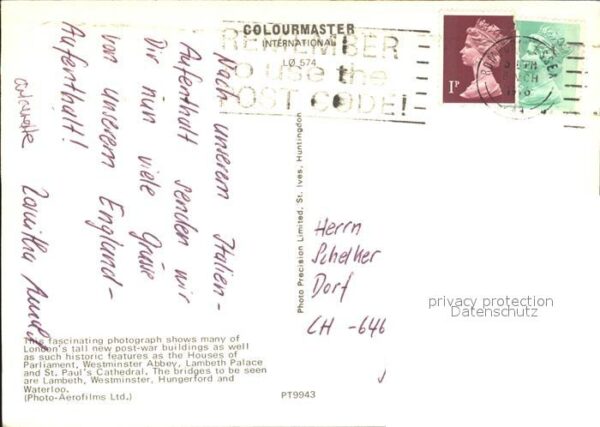 COLOURMASTER
INTERNATIONAL
LO 574
REMEMBER
to use the
POST CODE!
1P
Nach unserem Italien-
Aufenthalt senden wir
Dir nun viele Grüße
von unserem England-
Aufenthalt!
Herrn
Schelker
Dorf
CH - 646
privacy protection
Datenschutz
Photo Precision Limited, St. Ives, Huntingdon
This fascinating photograph shows many of
London's tall new post-war buildings as well
as such historic features as the Houses of
Parliament, Westminster Abbey, Lambeth Palace
and St. Paul's Cathedral. The bridges to be seen
are Lambeth, Westminster, Hungerford and
Waterloo.
(Photo-Aerofilms Ltd.)
PT9943